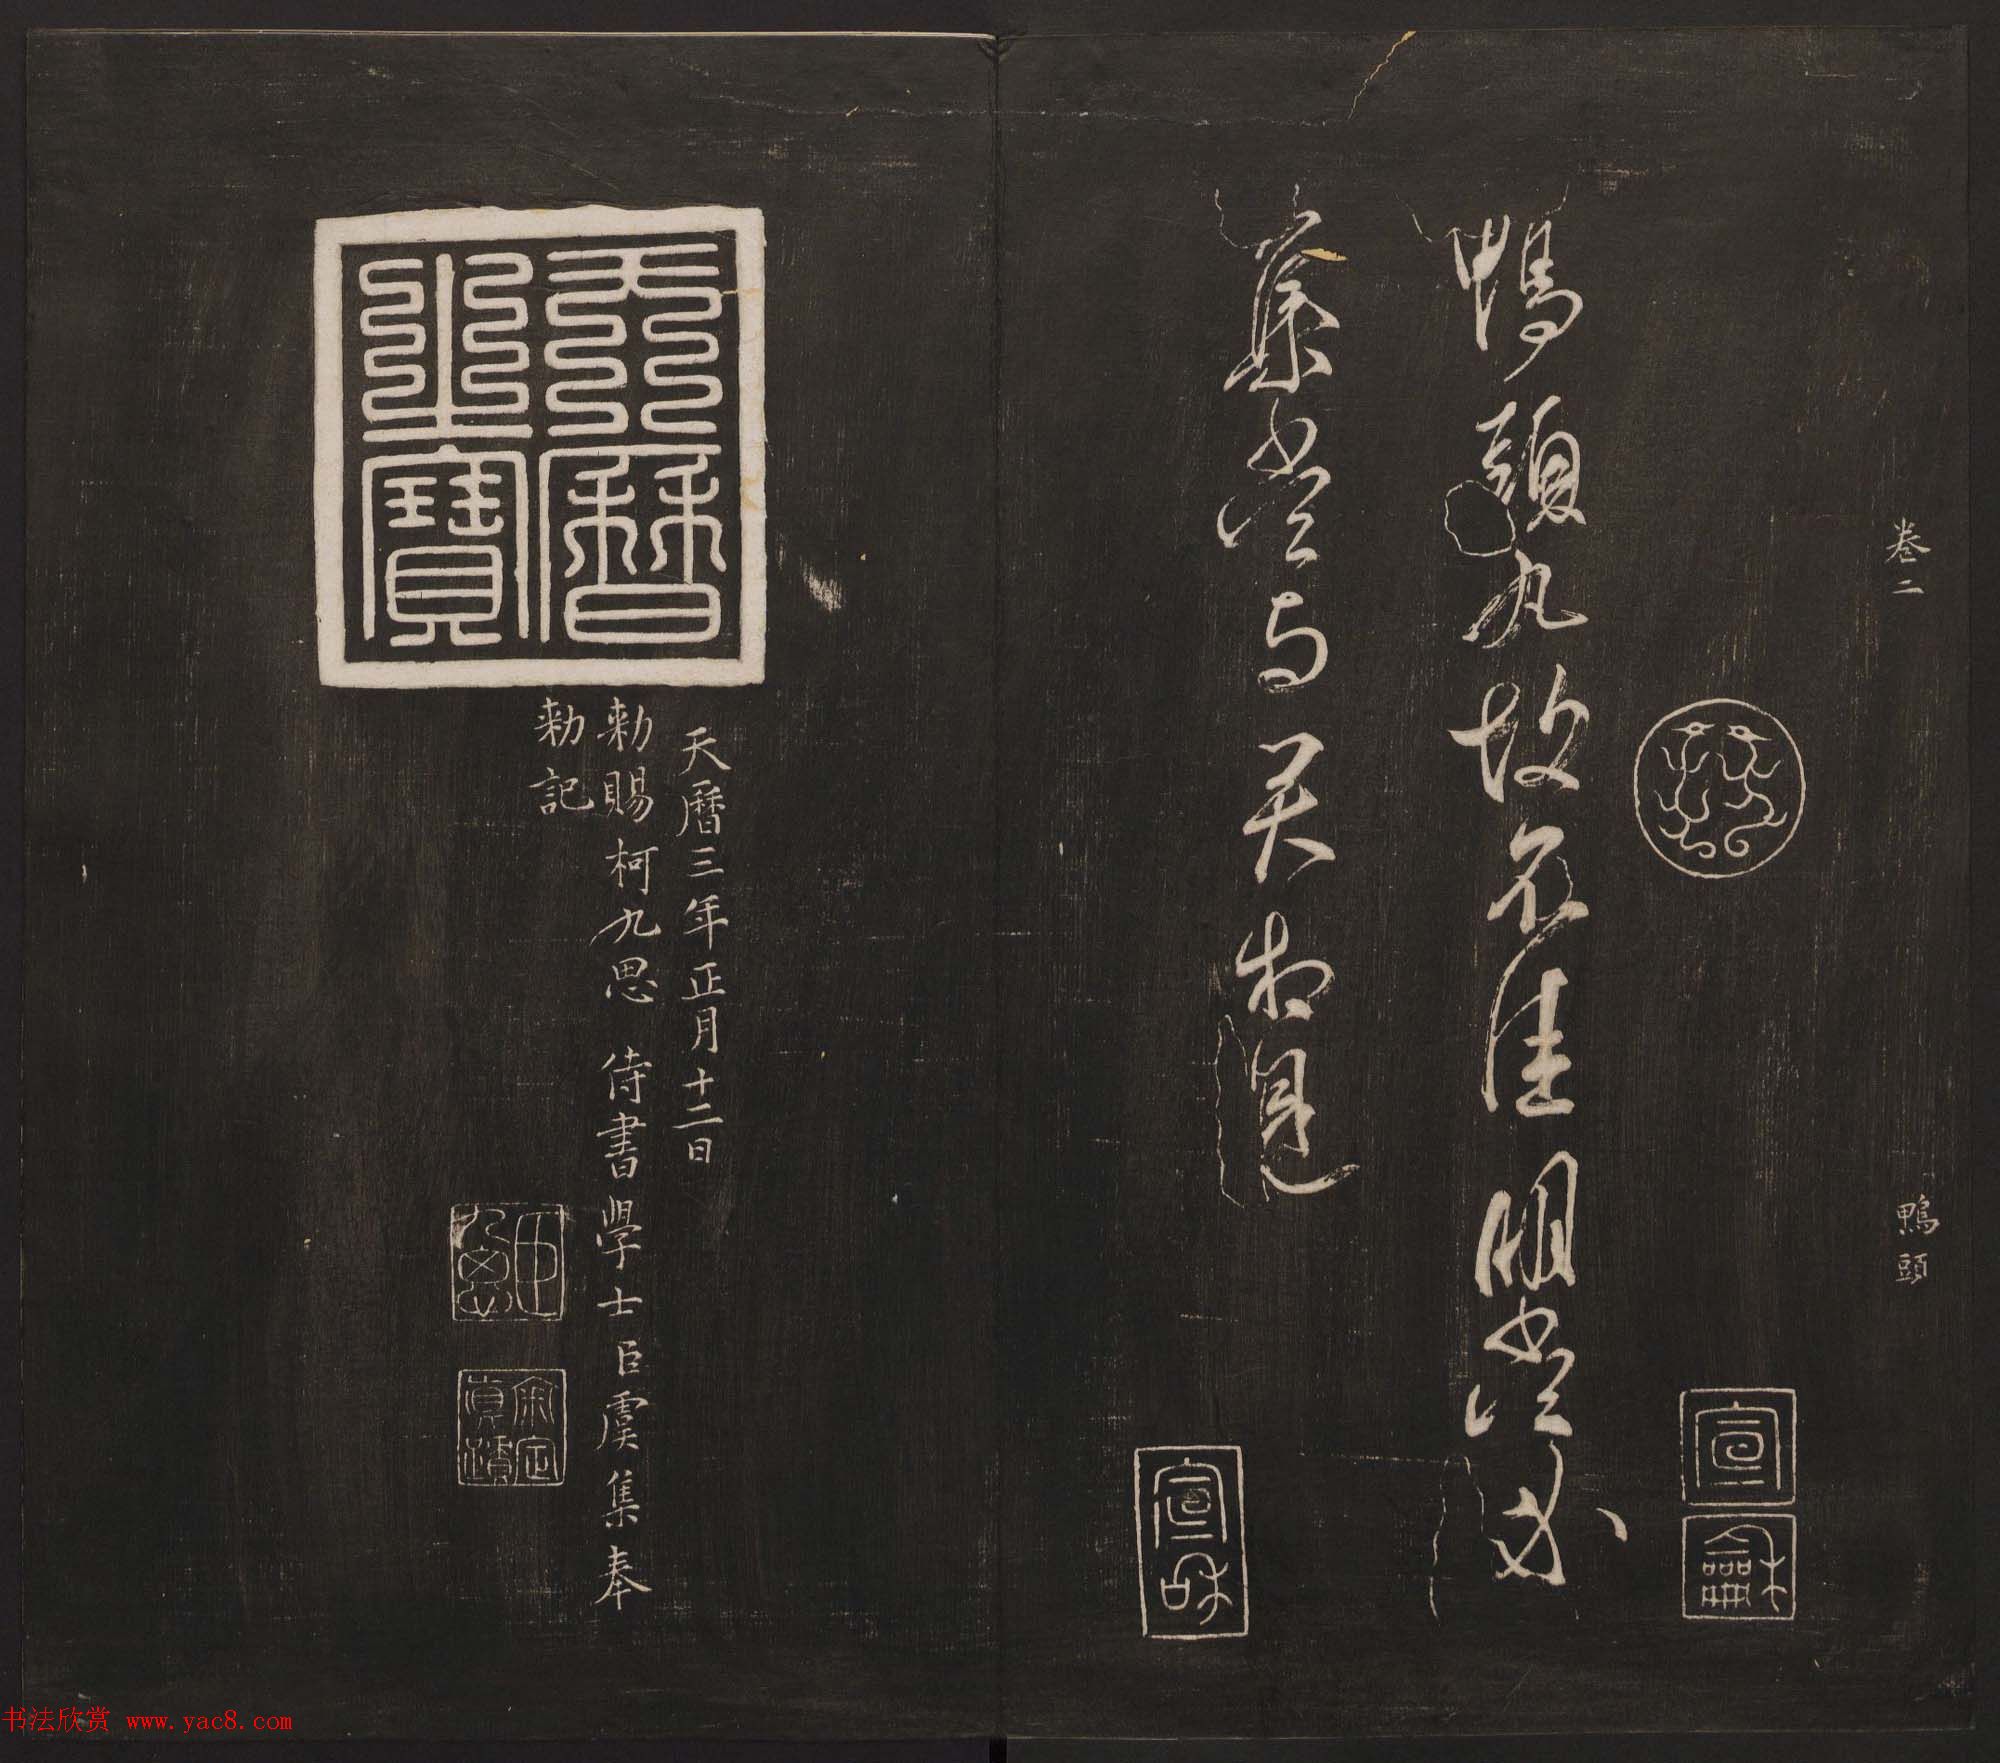 卷二
鴨頭
鴨頭丸故不佳明當必
集當與君相見
宣
龢
宣和
天曆之寶
天曆三年正月十二日
勑賜柯九思侍書學士臣虞集奉
勑記
书法欣赏 www.yac8.com